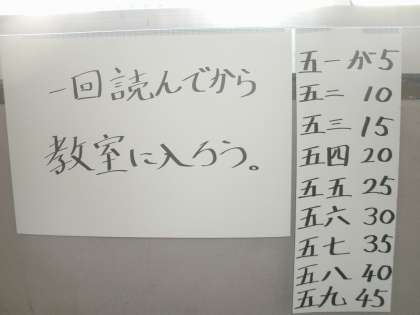 一回読んでから
教室に入ろう。
五一が5
五二 10
五三 15
五四 20
五五 25
五六 30
五七 35
五八 40
五九 45